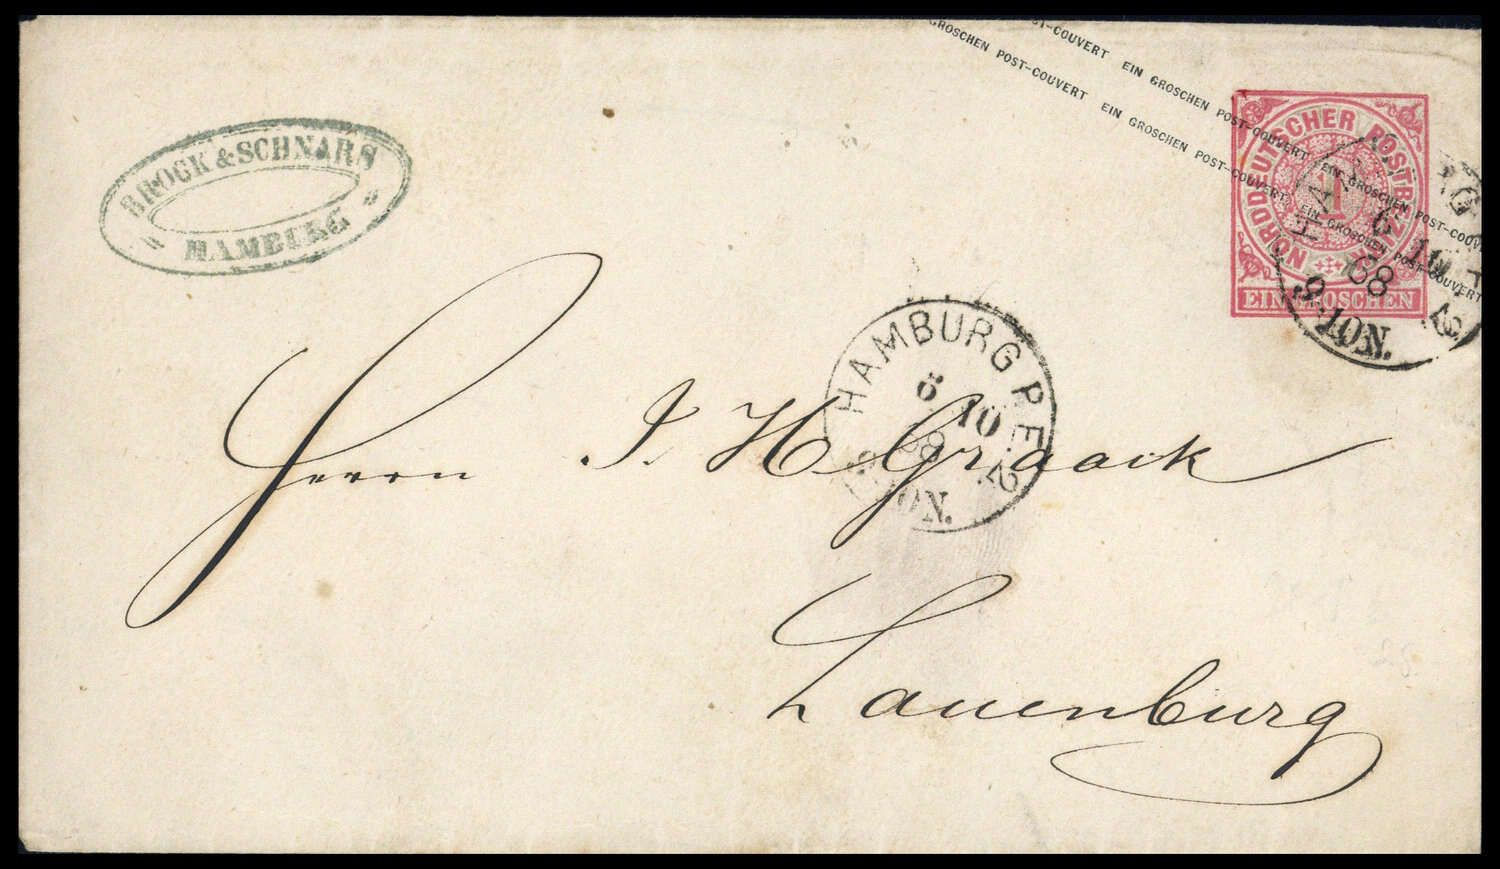 GROSCHEN POST-COUVERT EIN GROSCHEN POST-COUVERT EIN GROSCHEN POST-COUVERT
POST-COUVERT EIN GROSCHEN POST-COUVERT EIN GROSCHEN POST-COUVERT
BROCK & SCHNARS
HAMBURG
NORDDEUTSCHER POSTBEZIRK
1
EIN GROSCHEN
6 10
68
9-10N.
HAMBURG P.E. 2
6 10
68
10N.
Herrn J H Graack
Lauenburg